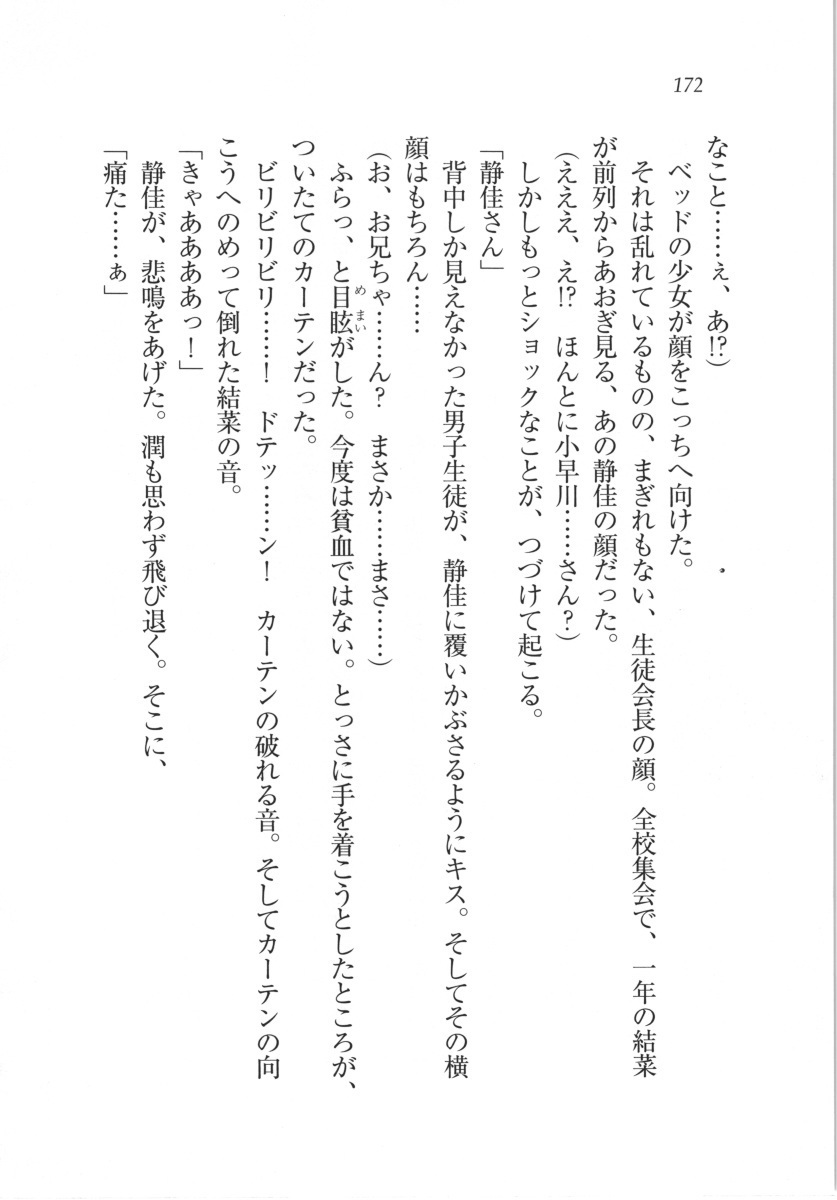 172
なこと……ぇ、あ!?)
ベッドの少女が顔をこっちへ向けた。
それは乱れているものの、まぎれもない、生徒会長の顔。全校集会で、一年の結菜
が前列からあおぎ見る、あの静佳の顔だった。
(えええ、え!?　ほんとに小早川……さん?)
しかしもっとショックなことが、つづけて起こる。
「静佳さん」
背中しか見えなかった男子生徒が、静佳に覆いかぶさるようにキス。そしてその横
顔はもちろん……
(お、お兄ちゃ……ん?　まさか……まさ……)
ふらっ、と目眩がした。今度は貧血ではない。とっさに手を着こうとしたところが、
ついたてのカーテンだった。
ビリビリビリ……!　ドテッ……ン!　カーテンの破れる音。そしてカーテンの向
こうへのめって倒れた結菜の音。
「きゃああああっ!」
静佳が、悲鳴をあげた。潤も思わず飛び退く。そこに、
「痛た……ぁ」